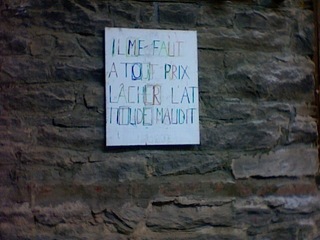 IL ME FAUT
A TOUT PRIX
LÂCHER L'AT
TITUDE MAUDIT